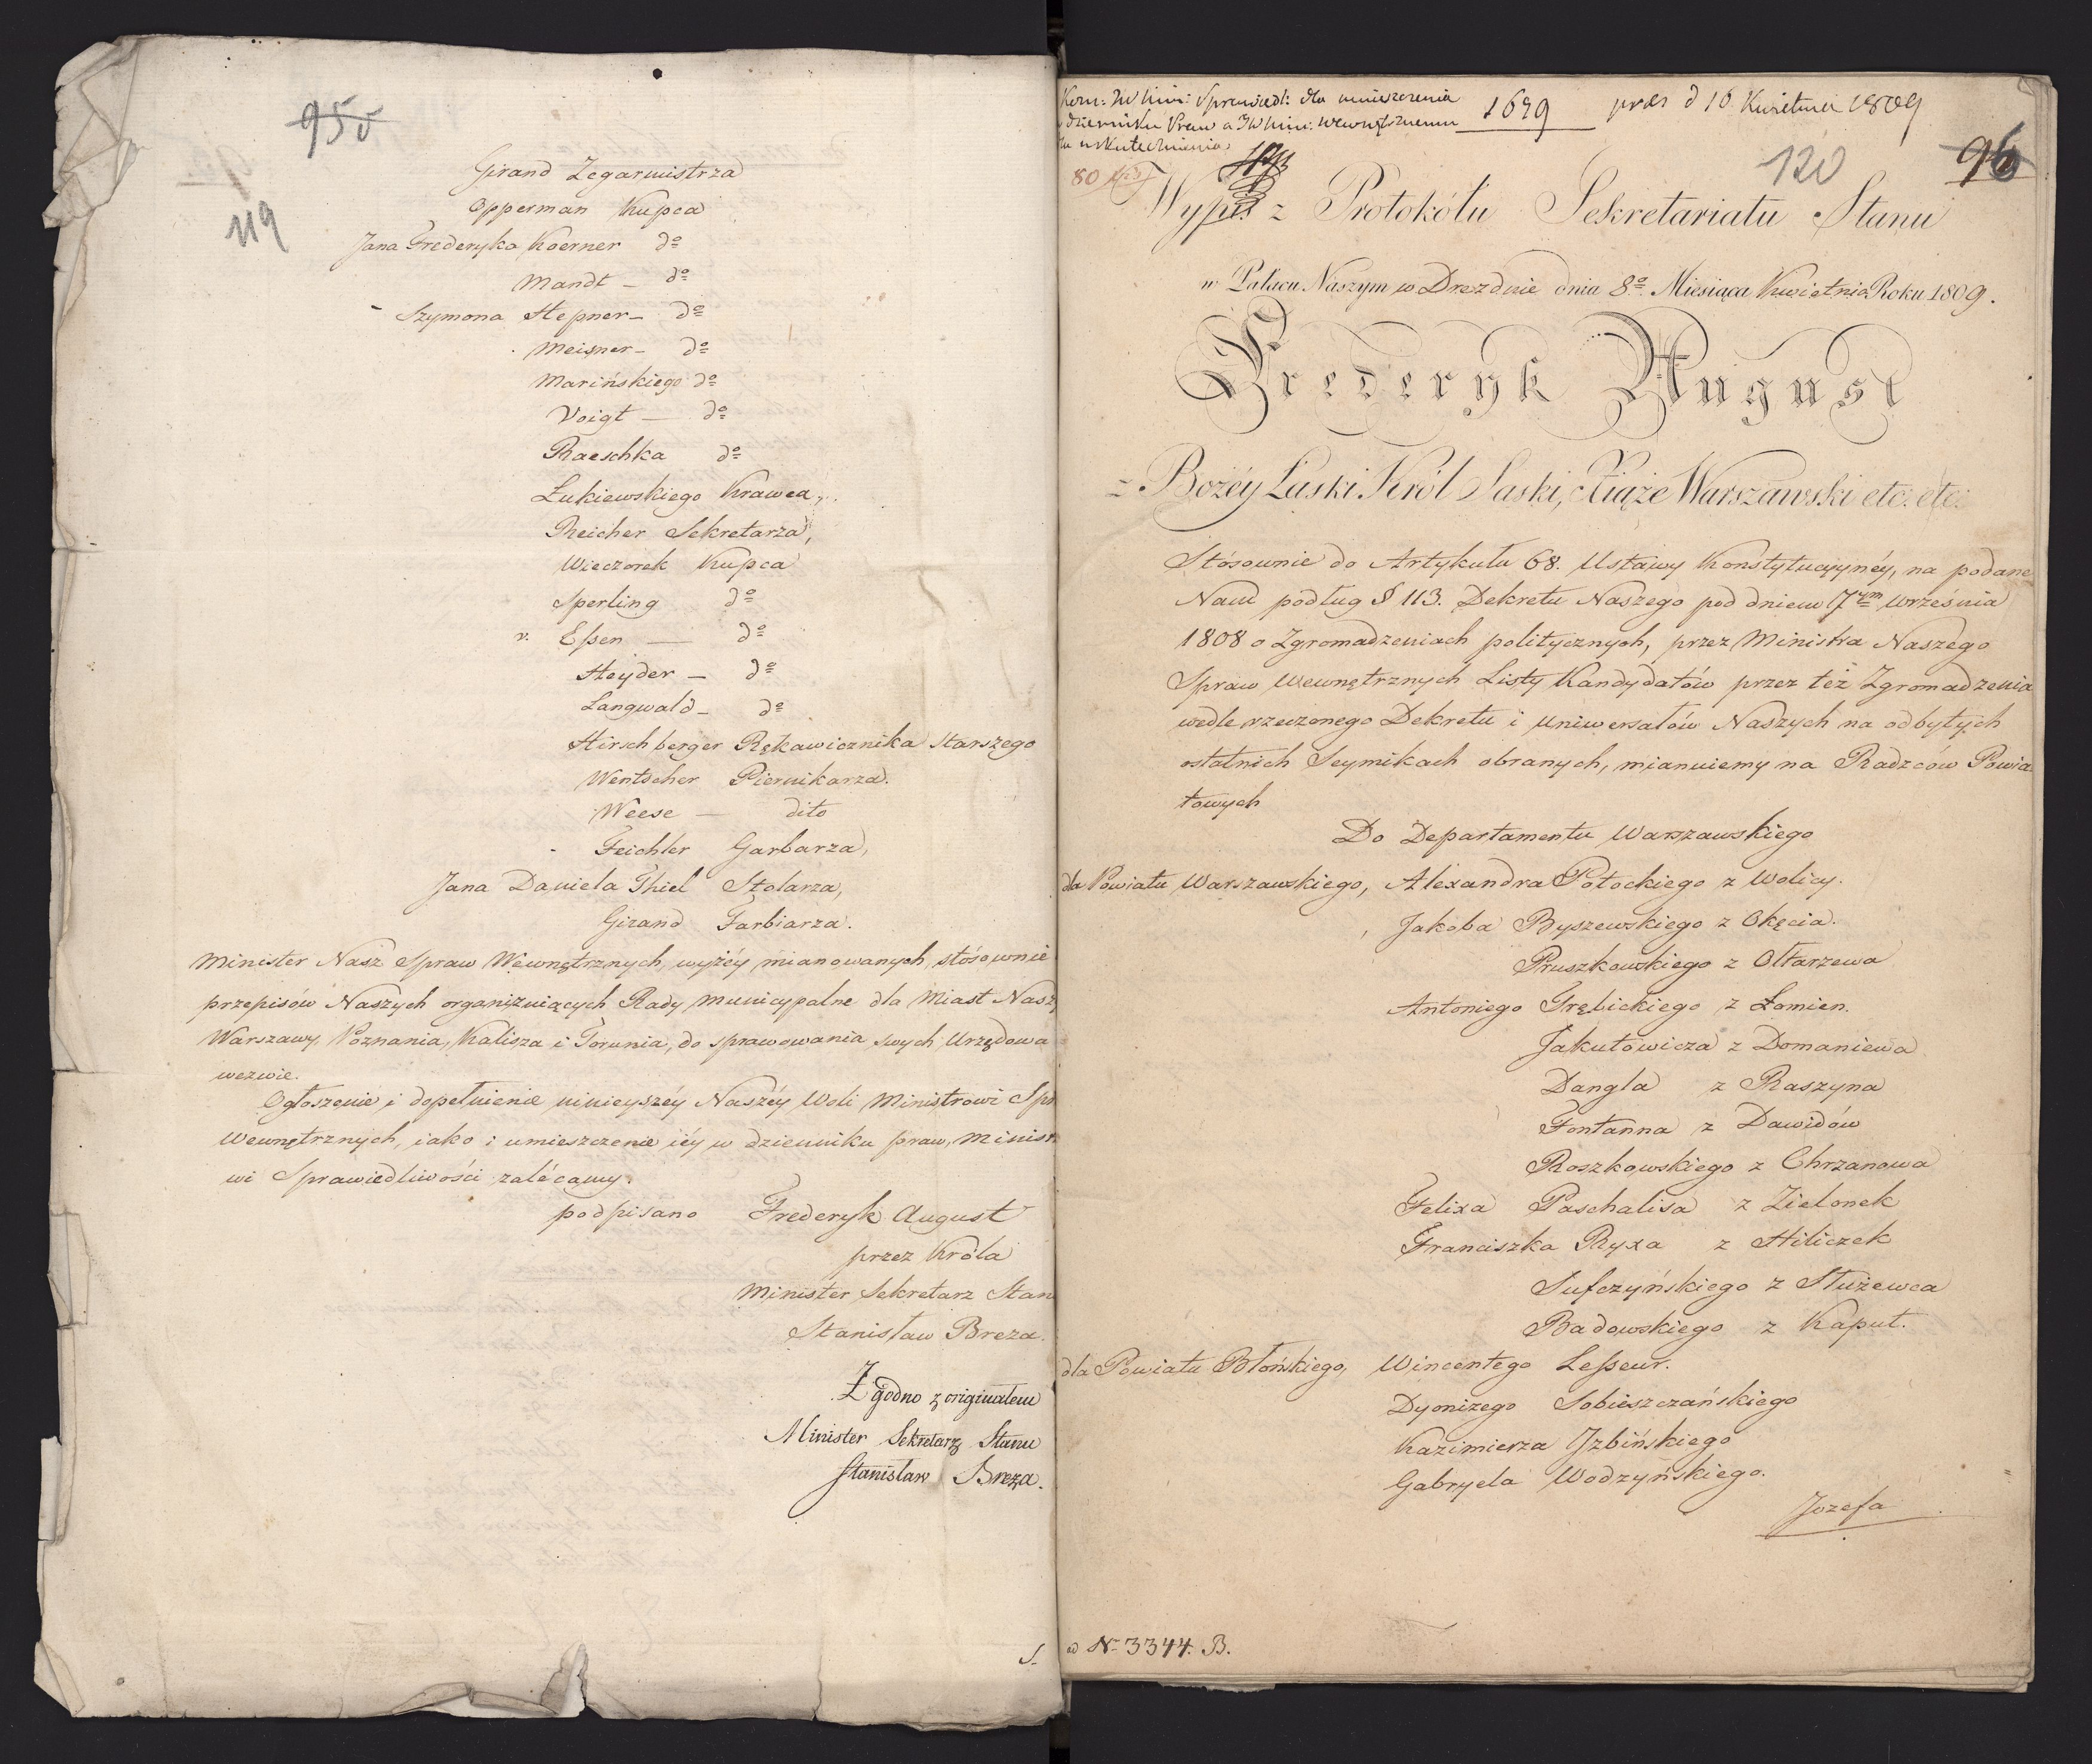 95v
119
Girand Zegarmistrza
Opperman Kupca
Jana Frederyka Koerner do
Mandt - do
Szymona Hepner - do
Meisner - do
Marińskiego do
Voigt - do
Raeschka do
Łukiewskiego Krawca,
Reicher Sekretarza,
Wieczorek Kupca
Sperling do
v. Eßen - do
Heyder - do
Langwald - do
Hirschberger Rękawicznika Starszego
Wentscher Piernikarza.
Weese - dito
Feichler Garbarza,
Jana Daniela Thiel Stolarza,
Girand Farbiarza.
Minister Nasz Spraw Wewnętrznych, wyżéy mianowanych, stósownie
przepisów Naszych organizuiących Rady Municypalne dla Miast Nasz
Warszawy, Poznania, Kalisza i Torunia, do sprawowania swych Urzędowa
wezwie.
Ogłoszenie i dopełnienie ninieyszéy Naszéy Woli Ministrowi Spr
Wewnętrznych, iako i umieszczenie iéy w dzienniku praw, Minist
wi Sprawiedliwości zalécamy.
podpisano Frederyk August
przez Króla
Minister Sekretarz Stan
Stanisław Breza.
Zgodno z originałem
Minister Sekretarz Stanu
Stanisław Breza.
Kom: JW Min: Sprawiedl: dla umieszczenia
dzienniku Praw a JW Min: Wewnętrznemu
uskutecznienia
1629
pres d 16 Kwietnia 1809
80
120
96
Wypis z Protokółu Sekretariatu Stanu
w Pałacu Naszym w Dreznie dnia 8o. Miesiąca Kwietnia Roku 1809.
Frederyk August
z Bożéy Łaski Król Saski, Xiąże Warszawski etc. etc.
Stósownie do Artykułu 68. Ustawy Konstytucyynéy, na podane
Nam podług § 113. Dekretu Naszego pod dniem 7ym Września
1808 o Zgromadzeniach politycznych, przez Ministra Naszego
Spraw Wewnętrznych Listy Kandydatów przez też Zgromadzenia
wedle rzeczonego Dekretu i Uniwersałów Naszych na odbytych
ostatnich Seymikach obranych, mianuiemy na Radzców Powia
towych
Do Departamentu Warszawskiego
dla Powiatu Warszawskiego, Alexandra Potockiego z Wolicy.
Jakóba Byszewskiego z Okęcia.
Pruszkowskiego z Ołtarzewa
Antoniego Trębickiego z Łomien.
Jakutowicza z Domaniewa
Dangla z Raszyna
Fontanna z Dawidów
Roszkowskiego z Chrzanowa
Felixa Paschalisa z Zielonek
Franciszka Ryxa z Hiliczek
Sufczyńskiego z Służewca
Badowskiego z Kaput.
dla Powiatu Błońskiego, Wincentego Leßeur.
Dyonizego Sobieszczańskiego
Kazimierza Jzbińskiego
Gabryela Wodzyńskiego.
Jozefa
ad No 3344. B.